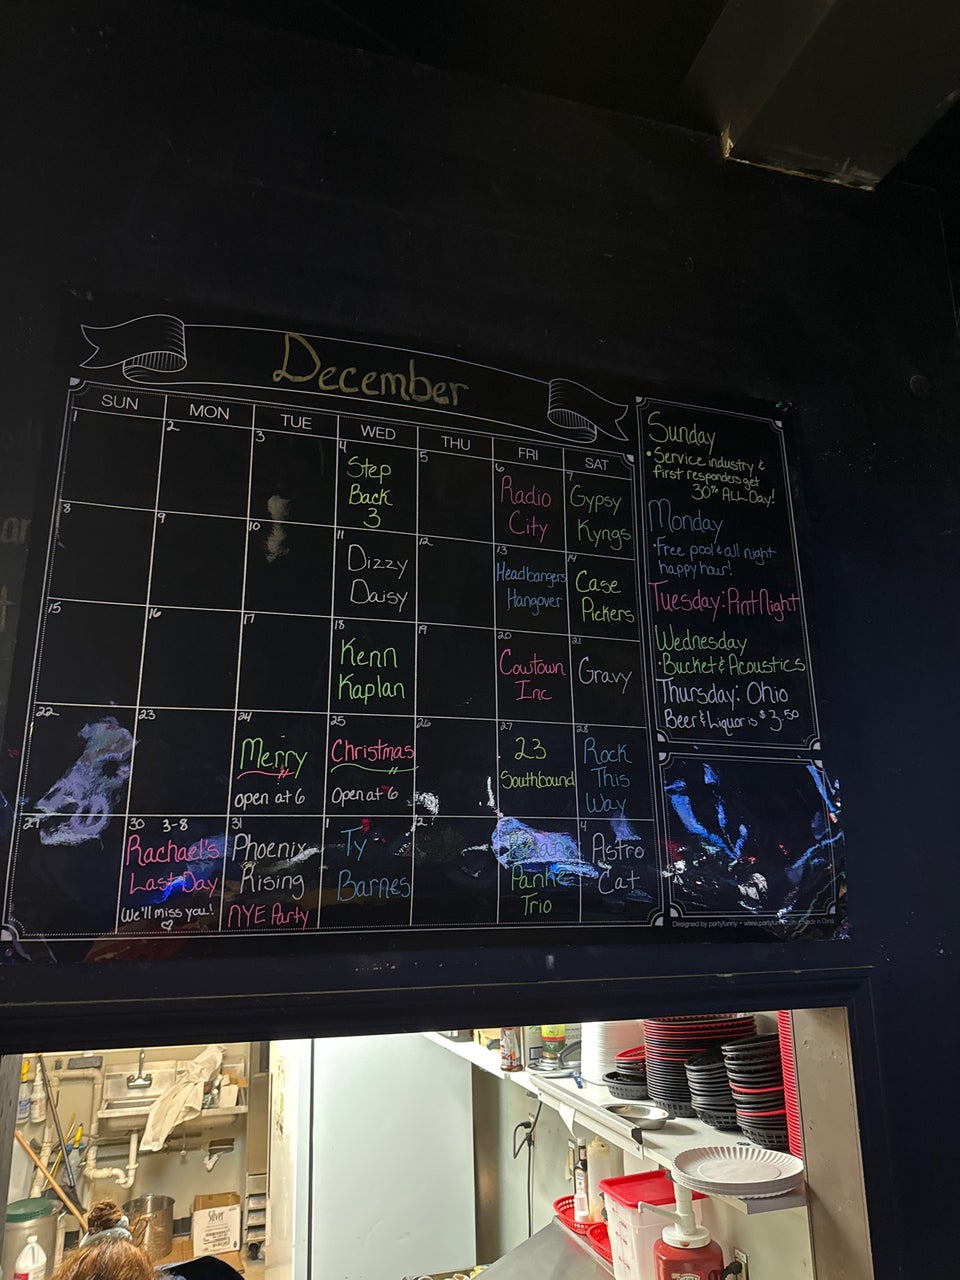 December
SUN MON TUE WED THU FRI SAT
1 2 3 4 5 6 7
Step
Back
3
Radio
City
Gypsy
Kyngs
8 9 10 11 12 13 14
Dizzy
Daisy
Headbangers
Hangover
Case
Pickers
15 16 17 18 19 20 21
Kenn
Kaplan
Cowtown
Inc
Gravy
22 23 24 25 26 27 28
Merry
open at 6
Christmas
Open at 6
23
Southbound
Rock
This
Way
29 30 31 1 2 4
3-8
Rachael's
Last Day
We'll miss you!
Phoenix
Rising
NYE Party
Ty
Barnes
Panke
Trio
Astro
Cat
Sunday
• Service industry &
first responders get
30% ALL Day!
Monday
• Free pool & all night
happy hour!
Tuesday: Pint Night
Wednesday
• Bucket & Acoustics
Thursday: Ohio
Beer & Liquor is $3.50
Designed by partyfunny
Made in China
Silver